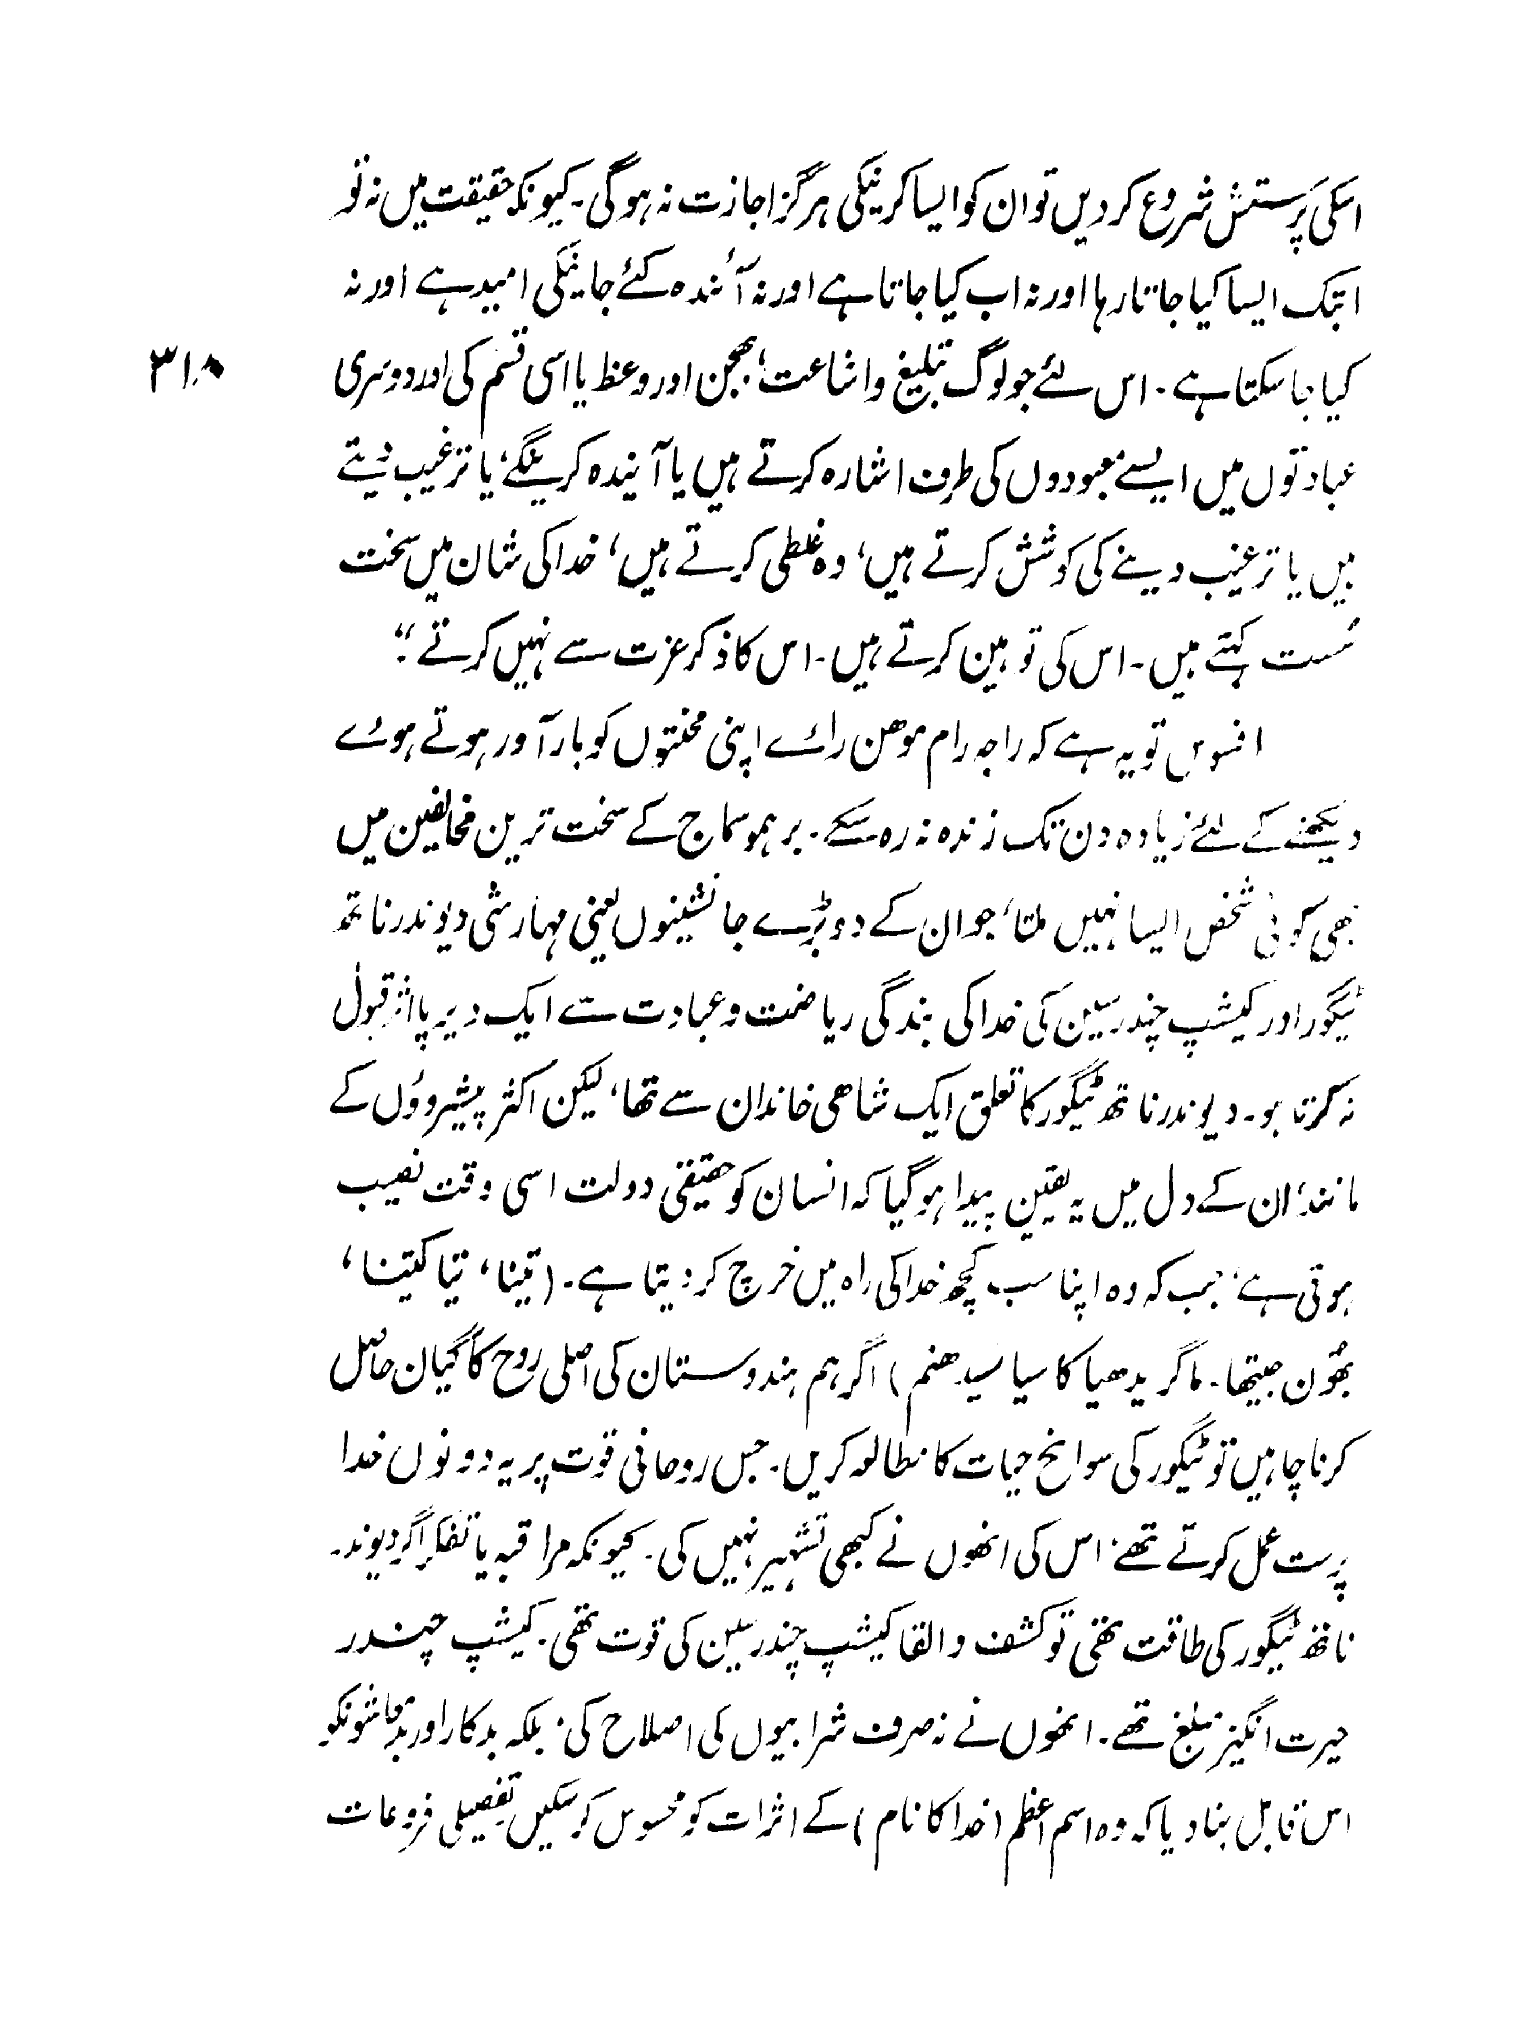 اسکی پرستش شروع کردیں تو ان کو ایسا کرنیکی ہرگز اجازت نہ ہوگی۔ کیونکہ حقیقت میں نہ تو
ابتک ایسا کیا جاتا رہا اور نہ اب کیا جاتا ہے اور نہ آئندہ کئے جانیکی امید ہے اور نہ
کیا جا سکتا ہے۔ اس لئے جو لوگ تبلیغ و اشاعت، بھجن اور وعظ یا اسی قسم کی اور دوسری
۳۱۸
عبادتوں میں ایسے معبودوں کی طرف اشارہ کرتے ہیں یا آیندہ کرینگے، یا ترغیب دیتے
ہیں یا ترغیب دینے کی کوشش کرتے ہیں، وہ غلطی کرتے ہیں، خدا کی شان میں سخت
سُست کہتے ہیں۔ اس کی توہین کرتے ہیں۔ اس کا ذکر عزت سے نہیں کرتے۔“
افسوس تو یہ ہے کہ راجہ رام موھن رائے اپنی محنتوں کو بار آور ہوتے ہوئے
دیکھنے کے لئے زیادہ دن تک زندہ نہ رہ سکے۔ برھمو سماج کے سخت ترین مخالفین میں
بھی کوئی شخص ایسا نہیں ملتا، جو ان کے دو بڑے جانشینوں یعنی مہارشی دیوندرناتھ
ٹیگور اور کیشپ چندرسین کی خدا کی بندگی ریاضت و عبادت سے ایک دیر پا اثر قبول
نہ کرتا ہو۔ دیوندرناتھ ٹیگور کا تعلق ایک شاھی خاندان سے تھا، لیکن اکثر پیشروؤں کے
مانند، ان کے دل میں یہ یقین پیدا ہوگیا کہ انسان کو حقیقی دولت اسی وقت نصیب
ہوتی ہے، جب کہ وہ اپنا سب کچھ خدا کی راہ میں خرچ کر دیتا ہے۔ (تینا، تیا کتینا،
بھون جیتھا۔ ماگر یدھیا کا سیا سیدھنم) اگر ہم ہندوستان کی اصلی روح کا گیان حاصل
کرنا چاہیں تو ٹیگور کی سوانح حیات کا مطالعہ کریں۔ جس روحانی قوت پر یہ دونوں خدا
پرست عمل کرتے تھے، اس کی انھوں نے کبھی تشہیر نہیں کی۔ کیونکہ مراقبہ یا تفکر اگر دیوند۔
ناتھ ٹیگور کی طاقت تھی تو کشف و القا کیشپ چندرسین کی قوت تھی۔ کیشپ چندر
حیرت انگیز مبلغ تھے۔ انھوں نے نہ صرف شرابیوں کی اصلاح کی، بلکہ بدکار اور بدمعاشونکو
اس قابل بنا دیا کہ وہ اسم اعظم (خدا کا نام) کے اثرات کو محسوس کر سکیں تفصیلی فروعات